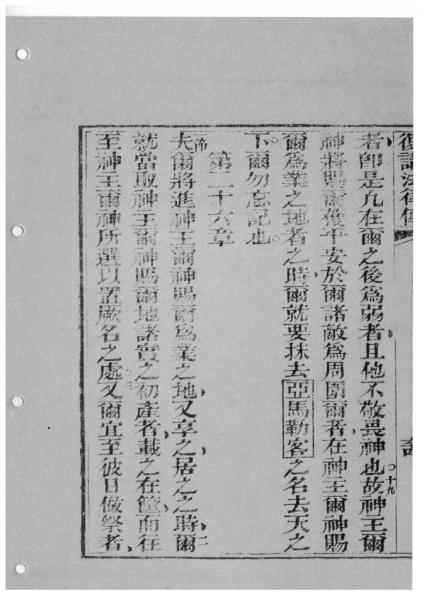 復講法律傳
者卽是凡在爾之後爲弱者且他不敬畏神也故十九神王爾
神將賜爾獲平安於爾諸敵爲周圍爾者在神王爾神賜
爾爲業之地者之時爾就要抹去亞馬勒客之名去天之
下爾勿忘記也
第二十六章
夫爾將進神王爾神賜爾爲業之地又享之居之之時爾二
就當取神王爾神賜爾地諸實之初產者載之在筐而往
至神王爾神所選以置厥名之處三又爾宜至彼日做祭者